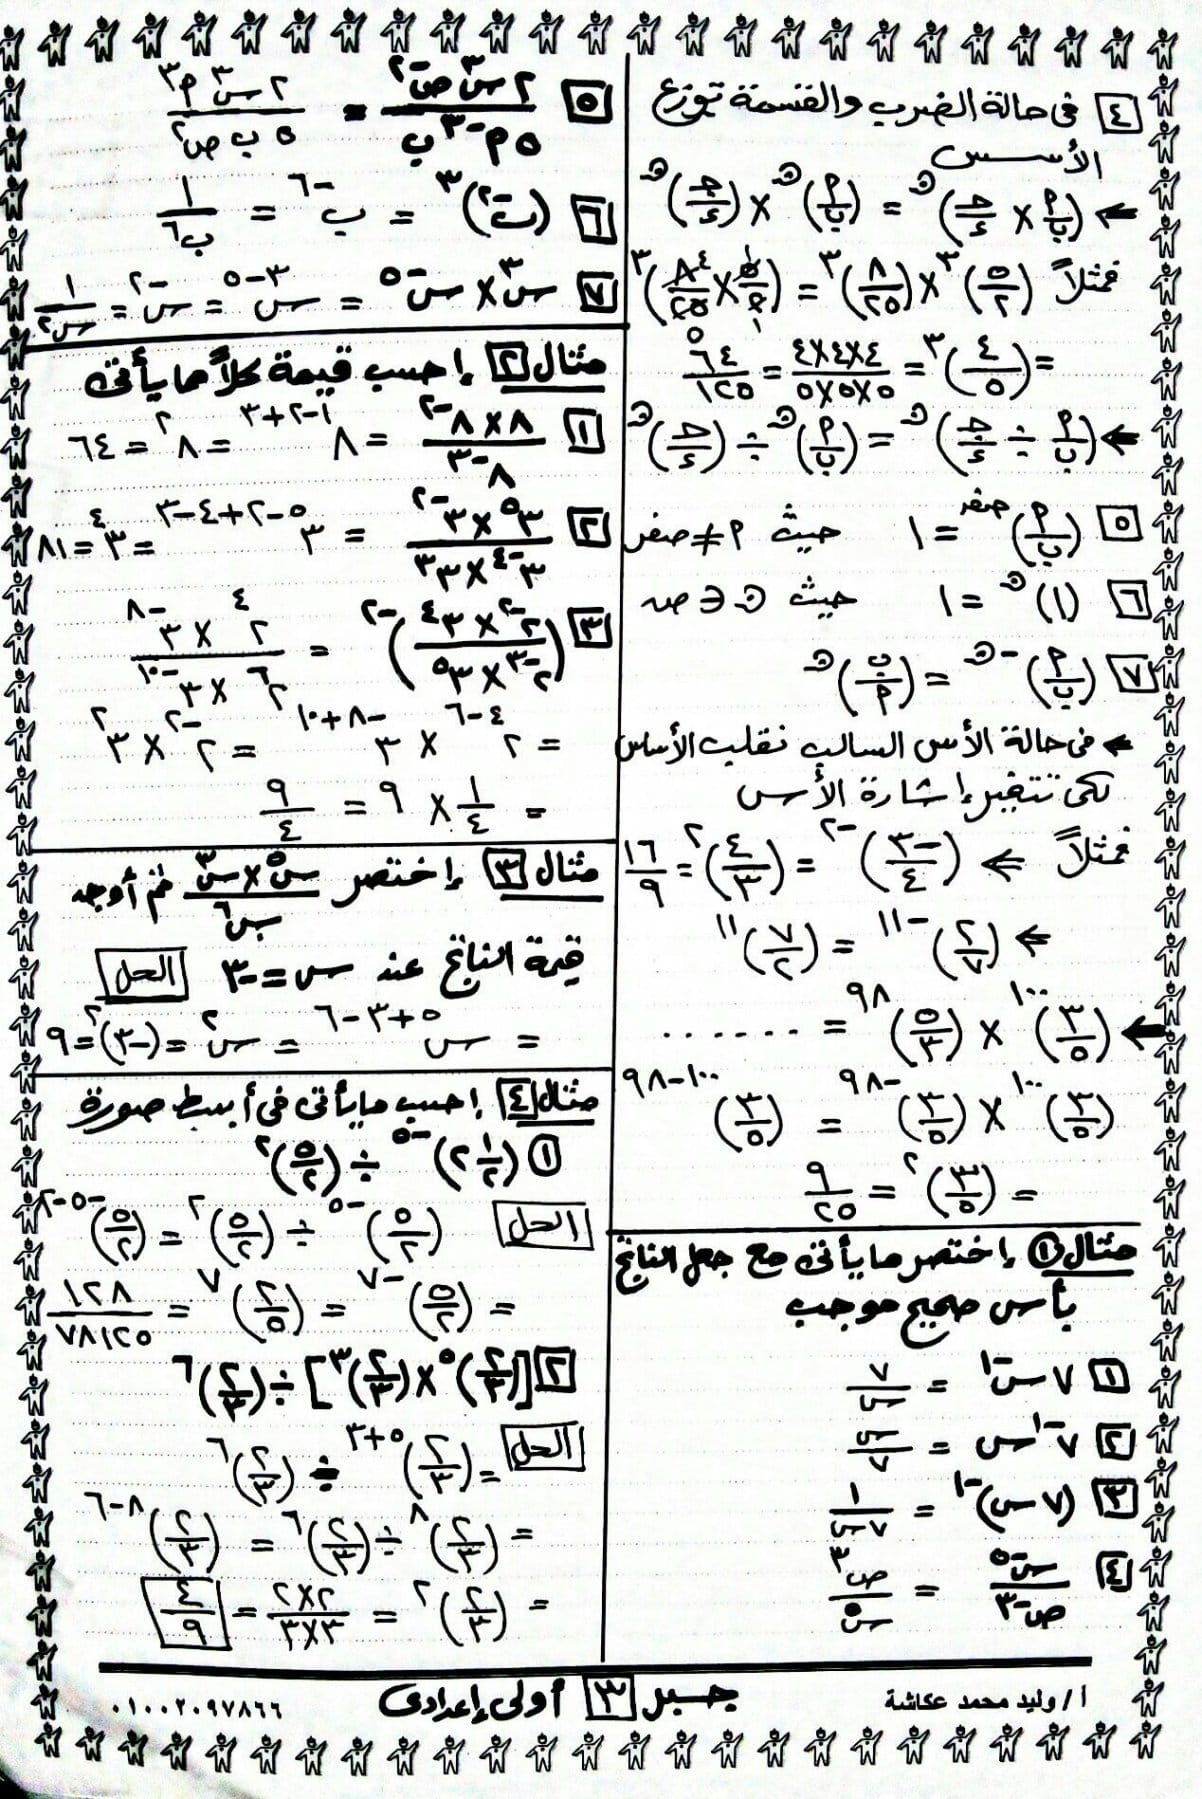 ٤ فى حالة الضرب والقسمة توزع
الأسس
← (م/ب × ح/ء)^ن = (م/ب)^ن × (ح/ء)^ن
فمثلاً (٥/٢)^٣ × (٨/٢٥)^٣ = (٥/٢ × ٨/٢٥)^٣
= (٤/٥)^٣ = ٤×٤×٤/٥×٥×٥ = ٦٤/١٢٥
← (م/ب ÷ ح/ء)^ن = (م/ب)^ن ÷ (ح/ء)^ن
٥ (م/ب)^صفر = ١ حيث م ≠ صفر
٦ (١)^ن = ١ حيث ن ∈ صہ
٧ (م/ب)^-ن = (ب/م)^ن
← فى حالة الأس السالب نقلب الأساس
لكى تتغير إشارة الأس
فمثلاً ← (-٣/٤)^-٢ = (٤/٣)^٢ = ١٦/٩
← (٢/٧)^-١١ = (٧/٢)^١١
← (٣/٥)^١٠٠ × (٥/٣)^٩٨ = .......
(٣/٥)^١٠٠ × (٣/٥)^-٩٨ = (٣/٥)^١٠٠-٩٨
= (٣/٥)^٢ = ٩/٢٥
مثال ١ إختصر ما يأتى مع جعل الناتج
بأس صحيح موجب
١ ٧ س^-١ = ٧/س
٢ ٧^-١ س = س/٧
٣ (٧ س)^-١ = ١/٧س
٤ س^-٥/ص^-٣ = ص^٣/س^٥
٥ ٢ س^٣ ص^-٢/٥ م^-٣ ب = ٢ س^٣ م^٣/٥ ب ص^٢
٦ (ب^-٢)^٣ = ب^-٦ = ١/ب^٦
٧ س^٣ × س^-٥ = س^٣-٥ = س^-٢ = ١/س^٢
مثال ٢ إحسب قيمة كلاً مما يأتى
١ ٨ × ٨^-٢/٨^-٣ = ٨^١-٢+٣ = ٨^٢ = ٦٤
٢ ٣^٥ × ٣^-٢/٣^-٤ × ٣^٣ = ٣^٥-٢+٤-٣ = ٣^٤ = ٨١
٣ (٢^-٢ × ٣^٤/٢^-٣ × ٣^٥)^-٢ = ٢^٤ × ٣^-٨/٢^٦ × ٣^-١٠
= ٢^٤-٦ × ٣^-٨+١٠ = ٢^-٢ × ٣^٢
= ١/٤ × ٩ = ٩/٤
مثال ٣ إختصر س^٥ × س^٣/س^٦ ثم أوجد
قيمة الناتج عند س = -٣ الحل
= س^٥+٣-٦ = س^٢ = (-٣)^٢ = ٩
مثال ٤ إحسب ما يأتى فى أبسط صورة
١ (٢ ١/٢)^-٥ ÷ (٥/٢)^٢
الحل (٥/٢)^-٥ ÷ (٥/٢)^٢ = (٥/٢)^-٥-٢
= (٥/٢)^-٧ = (٢/٥)^٧ = ١٢٨/٧٨١٢٥
٢ [(٢/٣)^٥ × (٢/٣)^٣] ÷ (٢/٣)^٦
الحل = (٢/٣)^٥+٣ ÷ (٢/٣)^٦
= (٢/٣)^٨ ÷ (٢/٣)^٦ = (٢/٣)^٨-٦
= (٢/٣)^٢ = ٢×٢/٣×٣ = ٤/٩
أ/ وليد محمد عكاشة جـبـر ٣ أولى إعدادى ٠١٠٠٢٠٩٧٨٦٦